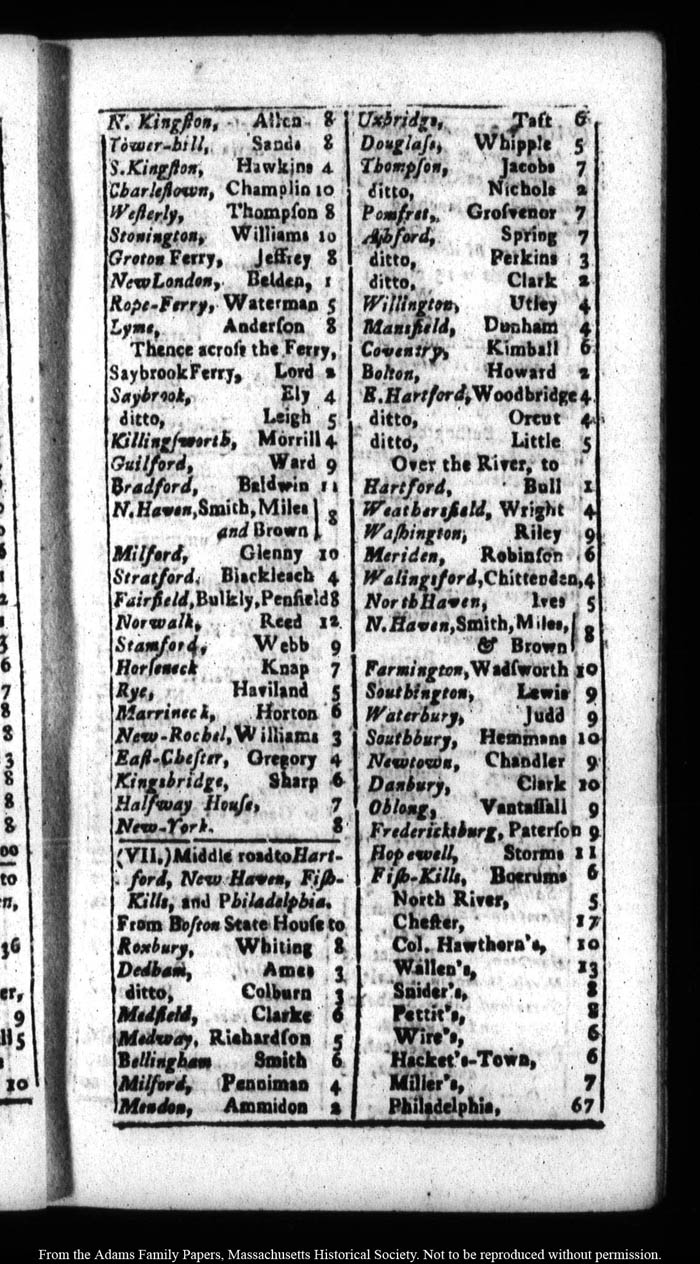 N. Kingſton, Allen 8
Tower-hill, Sands 8
S. Kingſton, Hawkins 4
Charleſtown, Champlin 10
Weſterly, Thompſon 8
Stonington, Williams 10
Groton Ferry, Jeffrey 8
New London, Belden, 1
Rope-Ferry, Waterman 5
Lyme, Anderſon 8
Thence acroſs the Ferry,
Saybrook Ferry, Lord 2
Saybrook, Ely 4
ditto, Leigh 5
Killingſworth, Morrill 4
Guilford, Ward 9
Bradford, Baldwin 11
N. Haven, Smith, Miles
and Brown 8
Milford, Glenny 10
Stratford. Blackleach 4
Fairfield, Bulkly, Penfield 8
Norwalk, Reed 12
Stamford, Webb 9
Horſeneck Knap 7
Rye, Haviland 5
Marrineck, Horton 6
New-Rochel, Williams 3
Eaſt-Cheſter, Gregory 4
Kingsbridge, Sharp 6
Halfway Houſe, 7
New-York. 8
(VII.) Middle road to Hart-
ford, New Haven, Fiſh-
Kills, and Philadelphia.
From Boſton State Houſe to
Roxbury, Whiting 8
Dedham, Ames 3
ditto, Colburn 3
Medfield, Clarke 6
Medway, Richardſon 5
Bellingham Smith 6
Milford, Penniman 4
Mendon, Ammidon 2
Uxbridge, Taft 6
Douglaſs, Whipple 5
Thompſon, Jacobs 7
ditto, Nichols 2
Pomfret, Groſvenor 7
Aſhford, Spring 7
ditto, Perkins 3
ditto, Clark 2
Willington, Utley 4
Mansfield, Dunham 4
Coventry, Kimball 6
Bolton, Howard 2
E. Hartford, Woodbridge 4
ditto, Orcut 4
ditto, Little 5
Over the River, to
Hartford, Bull 1
Weathersfield, Wright 4
Waſhington, Riley 9
Meriden, Robinſon 6
Walingsford, Chittenden, 4
North Haven, Ives 5
N. Haven, Smith, Miles,
& Brown 8
Farmington, Wadſworth 10
Southington, Lewis 9
Waterbury, Judd 9
Southbury, Hemmans 10
Newtown, Chandler 9
Danbury, Clark 10
Oblong, Vantaſſall 9
Fredericksburg, Paterſon 9
Hopewell, Storms 11
Fiſh-Kills, Boerums 6
North River, 5
Cheſter, 17
Col. Hawthorn's, 10
Wallen's, 13
Snider's, 8
Pettit's, 8
Wire's, 6
Hacket's-Town, 6
Miller's, 7
Philadelphia, 67
From the Adams Family Papers, Massachusetts Historical Society. Not to be reproduced without permission.